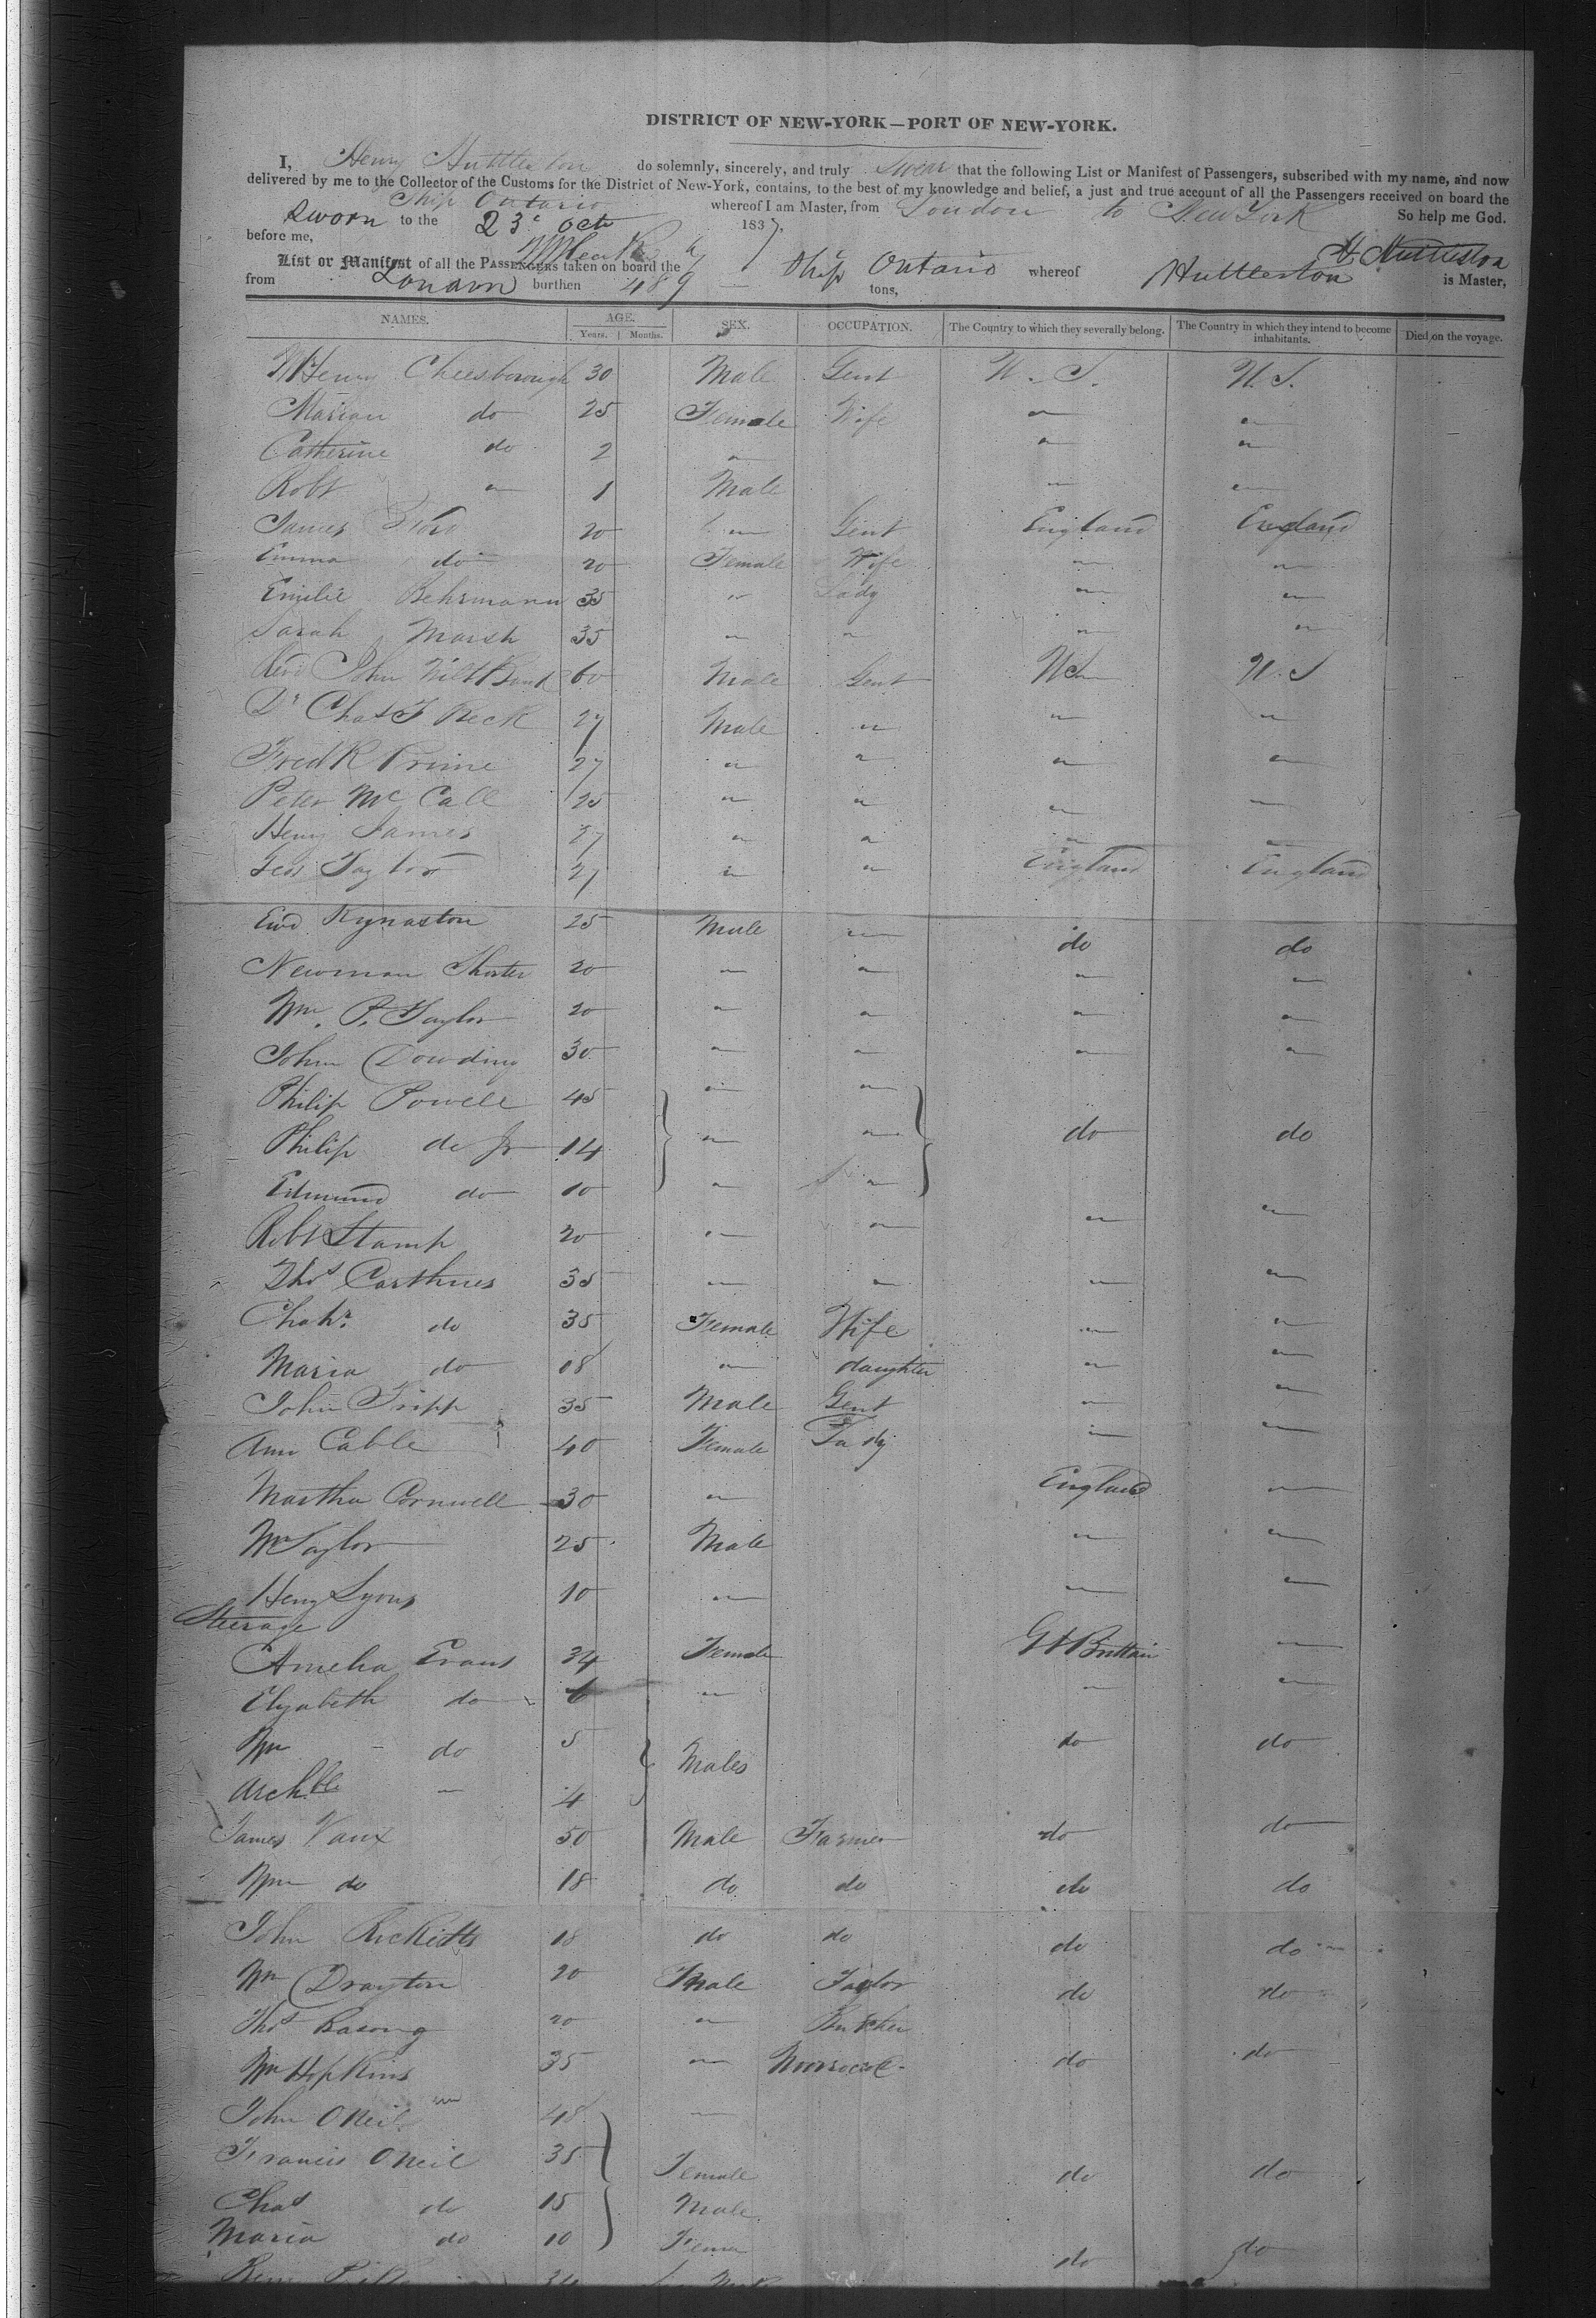 DISTRICT OF NEW-YORK—PORT OF NEW-YORK.
I, Henry Huttleston do solemnly, sincerely, and truly swear that the following List or Manifest of Passengers, subscribed with my name, and now
delivered by me to the Collector of the Customs for the District of New-York, contains, to the best of my knowledge and belief, a just and true account of all the Passengers received on board the
Ship Ontario whereof I am Master, from London to New York So help me God.
Sworn to the 23d Octr 1837,
before me, H. Huttleston
List or Manifest of all the PASSENGERS taken on board the Ship Ontario whereof Huttleston is Master,
from London burthen 489 tons,
NAMES. AGE. SEX. OCCUPATION. The Country to which they severally belong. The Country in which they intend to become inhabitants. Died on the voyage.
Years. Months.
Henry Cheesborough 30 Male Gent U. S. U. S.
Marian do 25 Female Wife " "
Catherine do 2 " " "
Robt " 1 Male " "
James 20 " Gent England England
Emma do 20 Female Wife " "
Emilie Behrmann 35 " Lady " "
Sarah Marsh 35 " " " "
Revd John WiltBank 60 Male Gent US U. S
Dr Chas F Beck 27 Male " " "
Fredk Prime 27 " " " "
Peter Mc Call 25 " " " "
Henry James 27 " " " "
Geo Taylor 21 " " England England
Ewd Kynaston 25 Male " do do
Newman Shorter 20 " " " "
Wm. P. Taylor 20 " " " "
John Dowding 30 " " " "
Philip Powell 45 " "
Philip do Jr 14 " " do do
Edmund do 10 " "
Robt Stamp 20 " " " "
Thos Carthnes 35 " " " "
do 35 Female Wife " "
Maria do 18 " daughter " "
John Tripp 35 Male Gent " "
Ann Cable 40 Female Lady " "
Martha Cornwell 30 " England "
Wm Taylor 25 Male " "
Henry Lyons 10 " " "
Steerage
Amelia Evans 34 Female Gt Brittain "
Elizabeth do 6 " " "
Wm do 5 Males do do
Archble " 4
James Vaux 50 Male Farmer do do
Wm do 18 do do do do
John Ricketts 18 do do do do
Wm Drayton 20 Male Taylor do do
Thos 20 " Butcher
Wm Hopkins 35 " do do
John ONeil 48 "
Francis ONeil 35 Female do do
Chas do 15 Male
Maria do 10 Fema do do